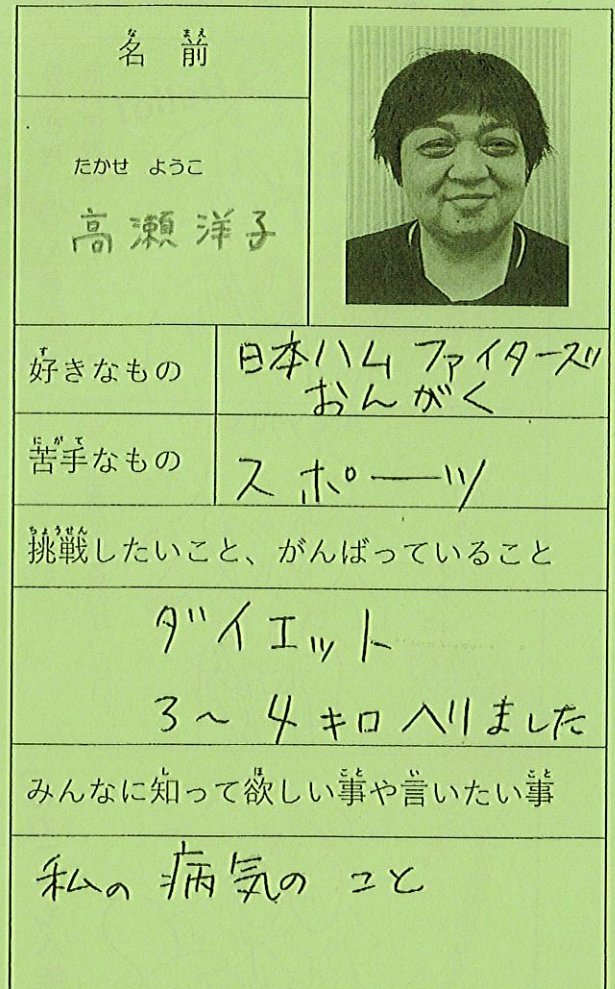 名前
たかせ ようこ
高瀬洋子
好きなもの
日本ハムファイターズ
おんがく
苦手なもの
スポーツ
挑戦したいこと、がんばっていること
ダイエット
3~4キロ入りました
みんなに知って欲しい事や言いたい事
私の病気のこと